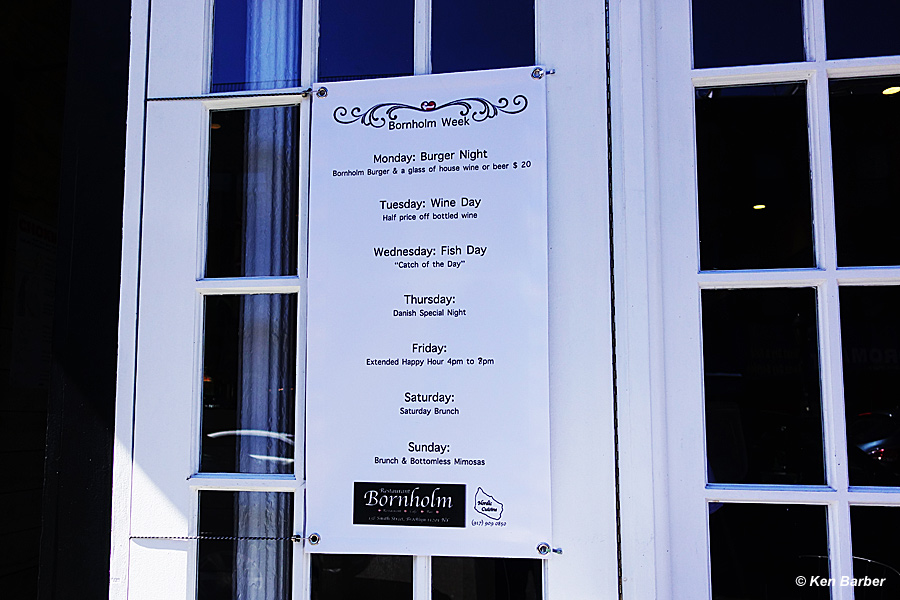 Bornholm Week
Monday: Burger Night
Bornholm Burger & a glass of house wine or beer $ 20
Tuesday: Wine Day
Half price off bottled wine
Wednesday: Fish Day
"Catch of the Day"
Thursday:
Danish Special Night
Friday:
Extended Happy Hour 4pm to ?pm
Saturday:
Saturday Brunch
Sunday:
Brunch & Bottomless Mimosas
Restaurant
Bornholm
Nordic
Cuisine
© Ken Barber